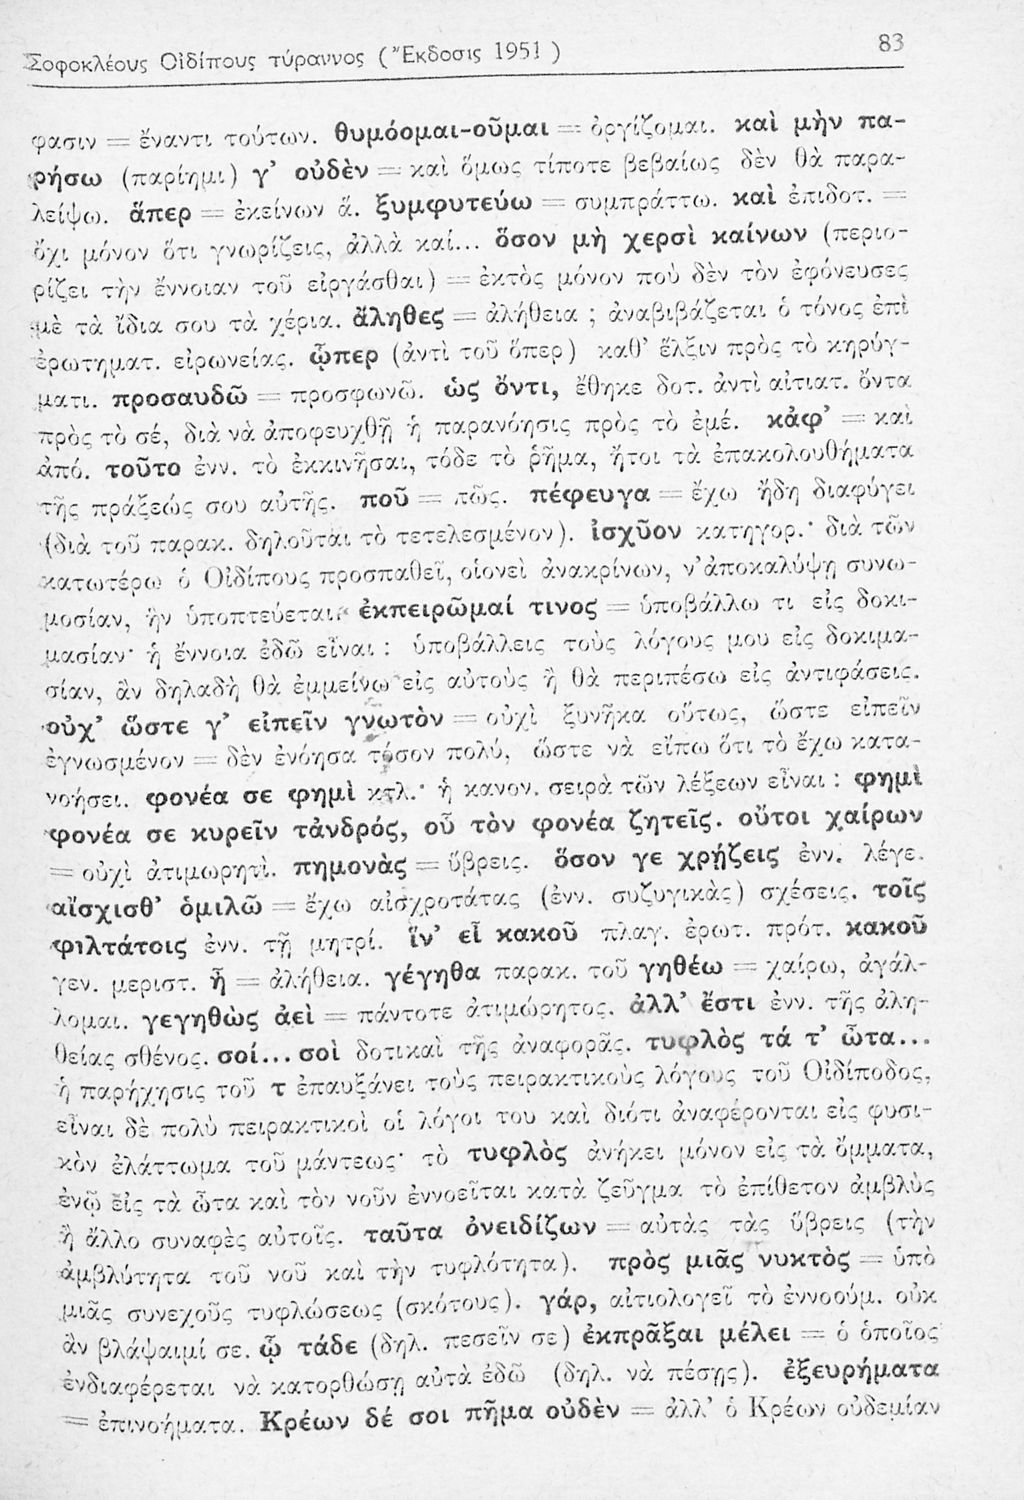 Σοφοκλέους Οἰδίπους τύραννος (Ἔκδοσις 1951) 83
φασιν = ἔναντι τούτων. θυμόομαι-οῦμαι = ὀργίζομαι. καὶ μὴν πα-
ρήσω (παρίημι) γ’ οὐδὲν = καὶ ὅμως τίποτε βεβαίως δὲν θὰ παρα-
λείψω. ἅπερ = ἐκείνων ἅ. ξυμφυτεύω = συμπράττω. καὶ ἐπιδοτ. =
ὄχι μόνον ὅτι γνωρίζεις, ἀλλὰ καί... ὅσον μὴ χερσὶ καίνων (περιο-
ρίζει τὴν ἔννοιαν τοῦ εἰργάσθαι) = ἐκτὸς μόνον ποὺ δὲν τὸν ἐφόνευσες
μὲ τὰ ἴδια σου τὰ χέρια. ἄληθες = ἀλήθεια ; ἀναβιβάζεται ὁ τόνος ἐπὶ
ἐρωτηματ. εἰρωνείας. ᾧπερ (ἀντὶ τοῦ ὅπερ) καθ’ ἕλξιν πρὸς τὸ κηρύγ-
ματι. προσαυδῶ = προσφωνῶ. ὡς ὄντι, ἔθηκε δοτ. ἀντὶ αἰτιατ. ὄντα
πρὸς τὸ σέ, διὰ νὰ ἀποφευχθῇ ἡ παρανόησις πρὸς τὸ ἐμέ. κἀφ’ = καὶ
ἀπό. τοῦτο ἐνν. τὸ ἐκκινῆσαι, τόδε τὸ ῥῆμα, ἤτοι τὰ ἐπακολουθήματα
τῆς πράξεώς σου αὐτῆς. ποῦ = πῶς. πέφευγα = ἔχω ἤδη διαφύγει
(διὰ τοῦ παρακ. δηλοῦται τὸ τετελεσμένον). ἰσχῦον κατηγορ.· διὰ τῶν
κατωτέρω ὁ Οἰδίπους προσπαθεῖ, οἱονεὶ ἀνακρίνων, ν’ ἀποκαλύψῃ συνω-
μοσίαν, ἣν ὑποπτεύεται. ἐκπειρῶμαί τινος = ὑποβάλλω τι εἰς δοκι-
μασίαν· ἡ ἔννοια ἐδῶ εἶναι : ὑποβάλλεις τοὺς λόγους μου εἰς δοκιμα-
σίαν, ἂν δηλαδὴ θὰ ἐμμείνω εἰς αὐτοὺς ἢ θὰ περιπέσω εἰς ἀντιφάσεις.
οὐχ’ ὥστε γ’ εἰπεῖν γνωτὸν = οὐχὶ ξυνῆκα οὕτως, ὥστε εἰπεῖν
ἐγνωσμένον = δὲν ἐνόησα τόσον πολύ, ὥστε νὰ εἴπω ὅτι τὸ ἔχω κατα-
νοήσει. φονέα σε φημὶ κτλ.· ἡ κανον. σειρὰ τῶν λέξεων εἶναι : φημὶ
φονέα σε κυρεῖν τἀνδρός, οὗ τὸν φονέα ζητεῖς. οὔτοι χαίρων
= οὐχὶ ἀτιμωρητί. πημονὰς = ὕβρεις. ὅσον γε χρῄζεις ἐνν. λέγε.
αἴσχισθ’ ὁμιλῶ = ἔχω αἰσχροτάτας (ἐνν. συζυγικὰς) σχέσεις. τοῖς
φιλτάτοις ἐνν. τῇ μητρί. ἵν’ εἶ κακοῦ πλαγ. ἐρωτ. πρότ. κακοῦ
γεν. μεριστ. ἦ = ἀλήθεια. γέγηθα παρακ. τοῦ γηθέω = χαίρω, ἀγάλ-
λομαι. γεγηθὼς ἀεὶ = πάντοτε ἀτιμώρητος. ἀλλ’ ἔστι ἐνν. τῆς ἀλη-
θείας σθένος. σοί... σοὶ δοτικαὶ τῆς ἀναφορᾶς. τυφλὸς τά τ’ ὦτα...
ἡ παρήχησις τοῦ τ ἐπαυξάνει τοὺς πειρακτικοὺς λόγους τοῦ Οἰδίποδος,
εἶναι δὲ πολὺ πειρακτικοὶ οἱ λόγοι του καὶ διότι ἀναφέρονται εἰς φυσι-
κὸν ἐλάττωμα τοῦ μάντεως· τὸ τυφλὸς ἀνήκει μόνον εἰς τὰ ὄμματα,
ἐνῷ εἰς τὰ ὦτα καὶ τὸν νοῦν ἐννοεῖται κατὰ ζεῦγμα τὸ ἐπίθετον ἀμβλὺς
ἢ ἄλλο συναφὲς αὐτοῖς. ταῦτα ὀνειδίζων = αὐτὰς τὰς ὕβρεις (τὴν
ἀμβλύτητα τοῦ νοῦ καὶ τὴν τυφλότητα). πρὸς μιᾶς νυκτὸς = ὑπὸ
μιᾶς συνεχοῦς τυφλώσεως (σκότους). γάρ, αἰτιολογεῖ τὸ ἐννοούμ. οὐκ
ἂν βλάψαιμί σε. ᾧ τάδε (δηλ. πεσεῖν σε) ἐκπρᾶξαι μέλει = ὁ ὁποῖος
ἐνδιαφέρεται νὰ κατορθώσῃ αὐτὰ ἐδῶ (δηλ. νὰ πέσῃς). ἐξευρήματα
= ἐπινοήματα. Κρέων δέ σοι πῆμα οὐδὲν = ἀλλ’ ὁ Κρέων οὐδεμίαν